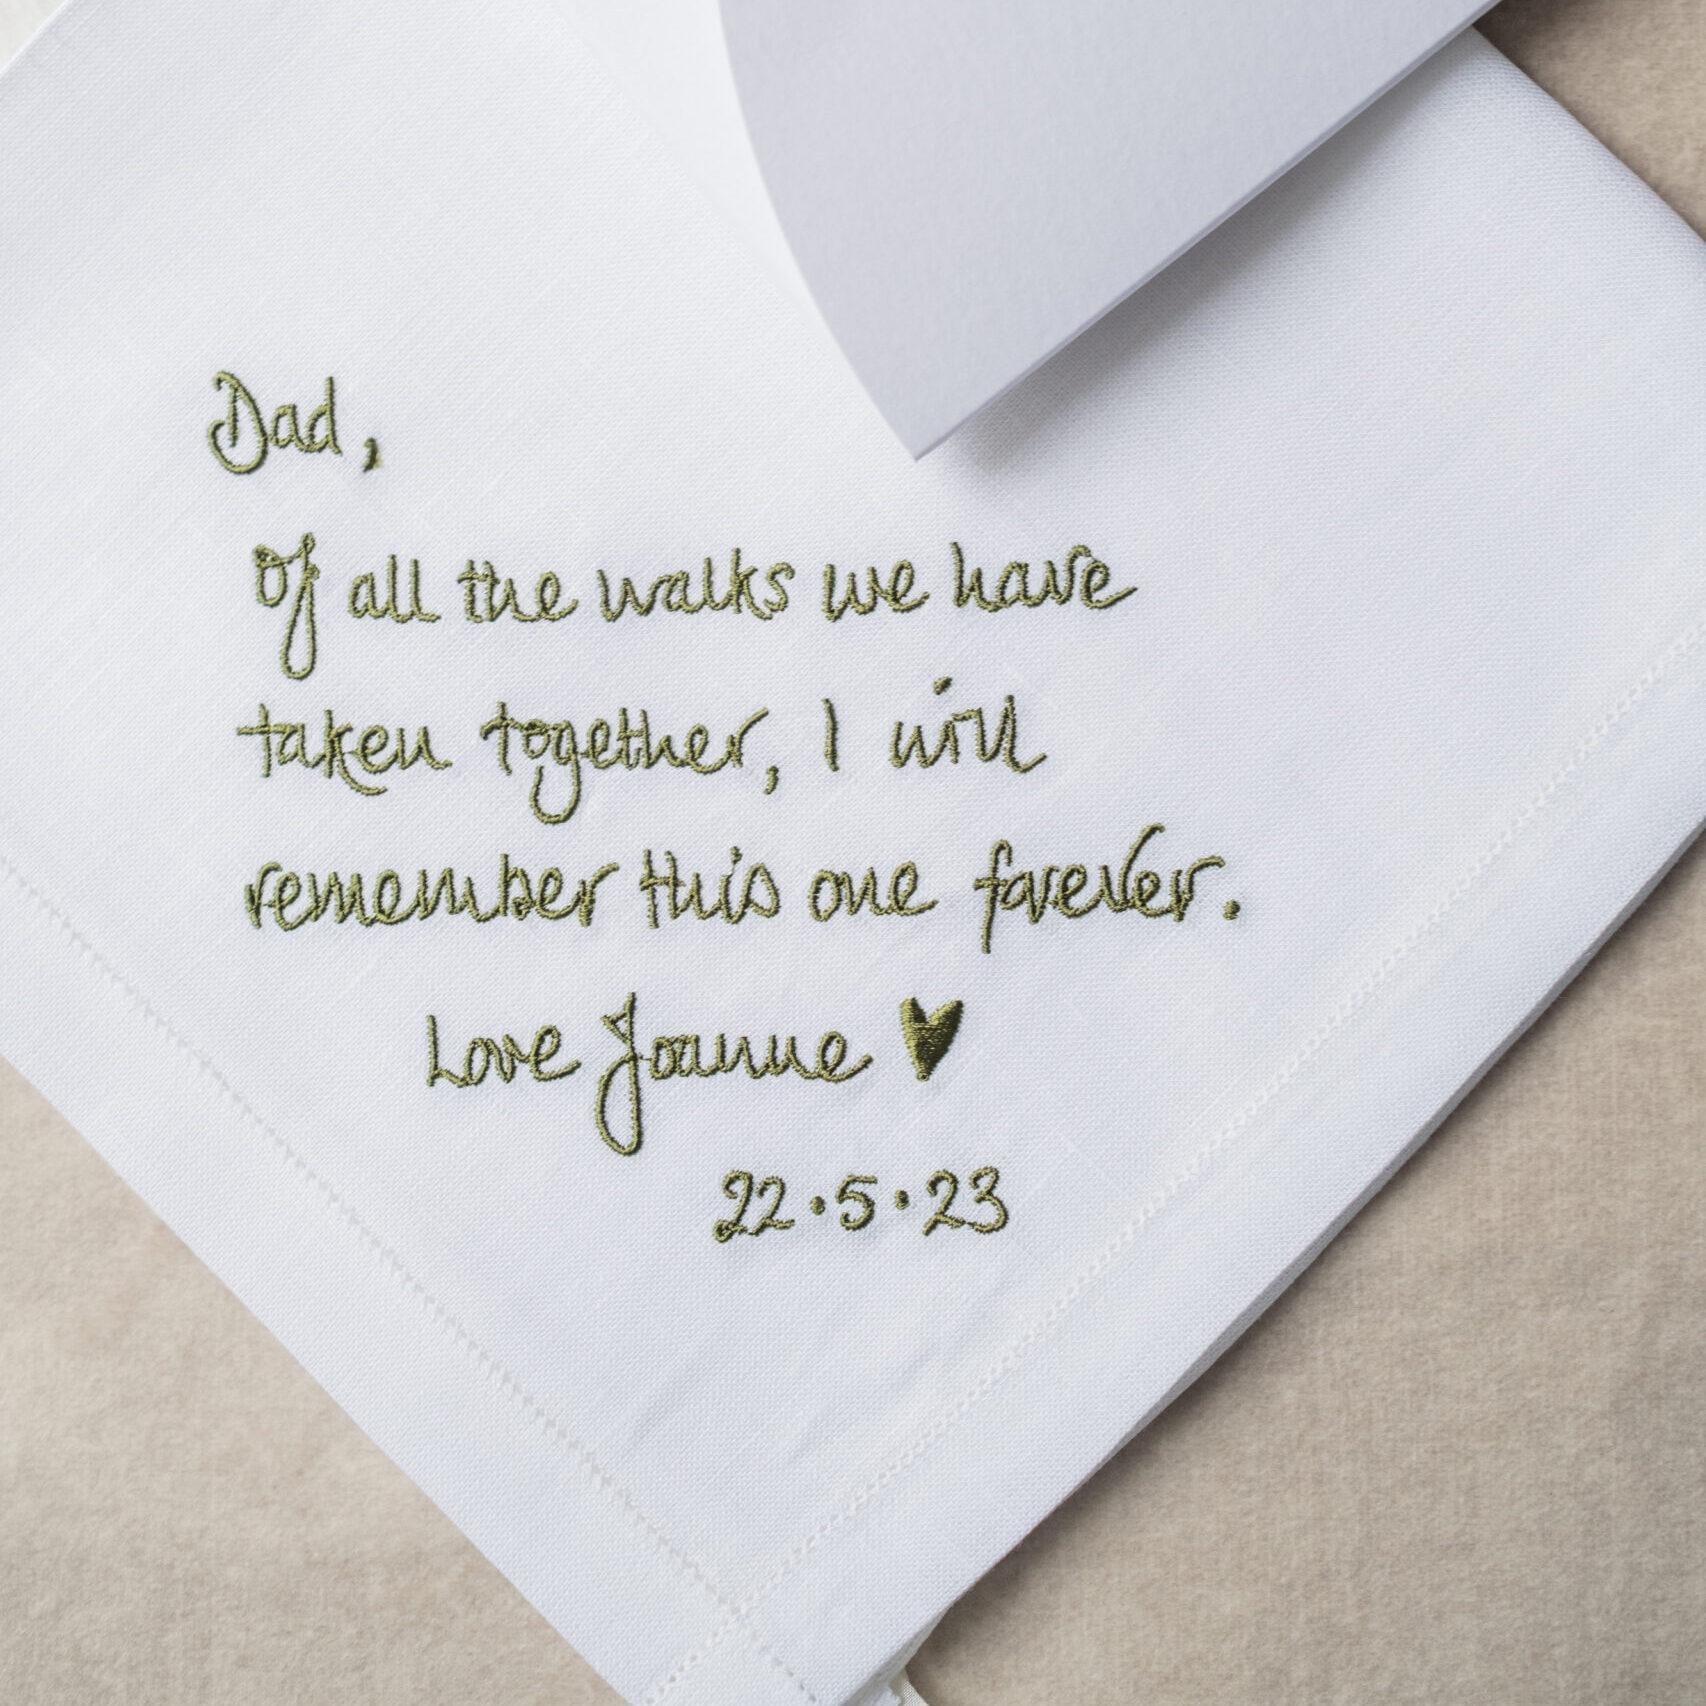 Dad,
Of all the walks we have
taken together, I will
remember this one forever.
Love Joanne ♥
22·5·23